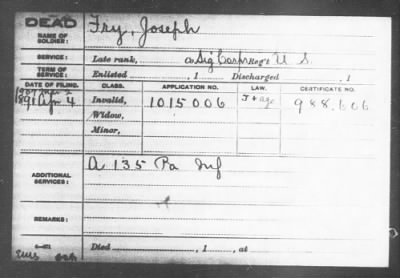 DEAD
NAME OF SOLDIER: Fry, Joseph
SERVICE: Late rank, Co Sig Corps Reg't U S.
TERM OF SERVICE: Enlisted , 1 Discharged , 1
DATE OF FILING. CLASS. APPLICATION NO. LAW. CERTIFICATE NO.
1891 Apr 4 Invalid, 1015006 988.606
Widow,
Minor,
ADDITIONAL SERVICES: A 135 Pa Inf
REMARKS:
Died , 1 , at